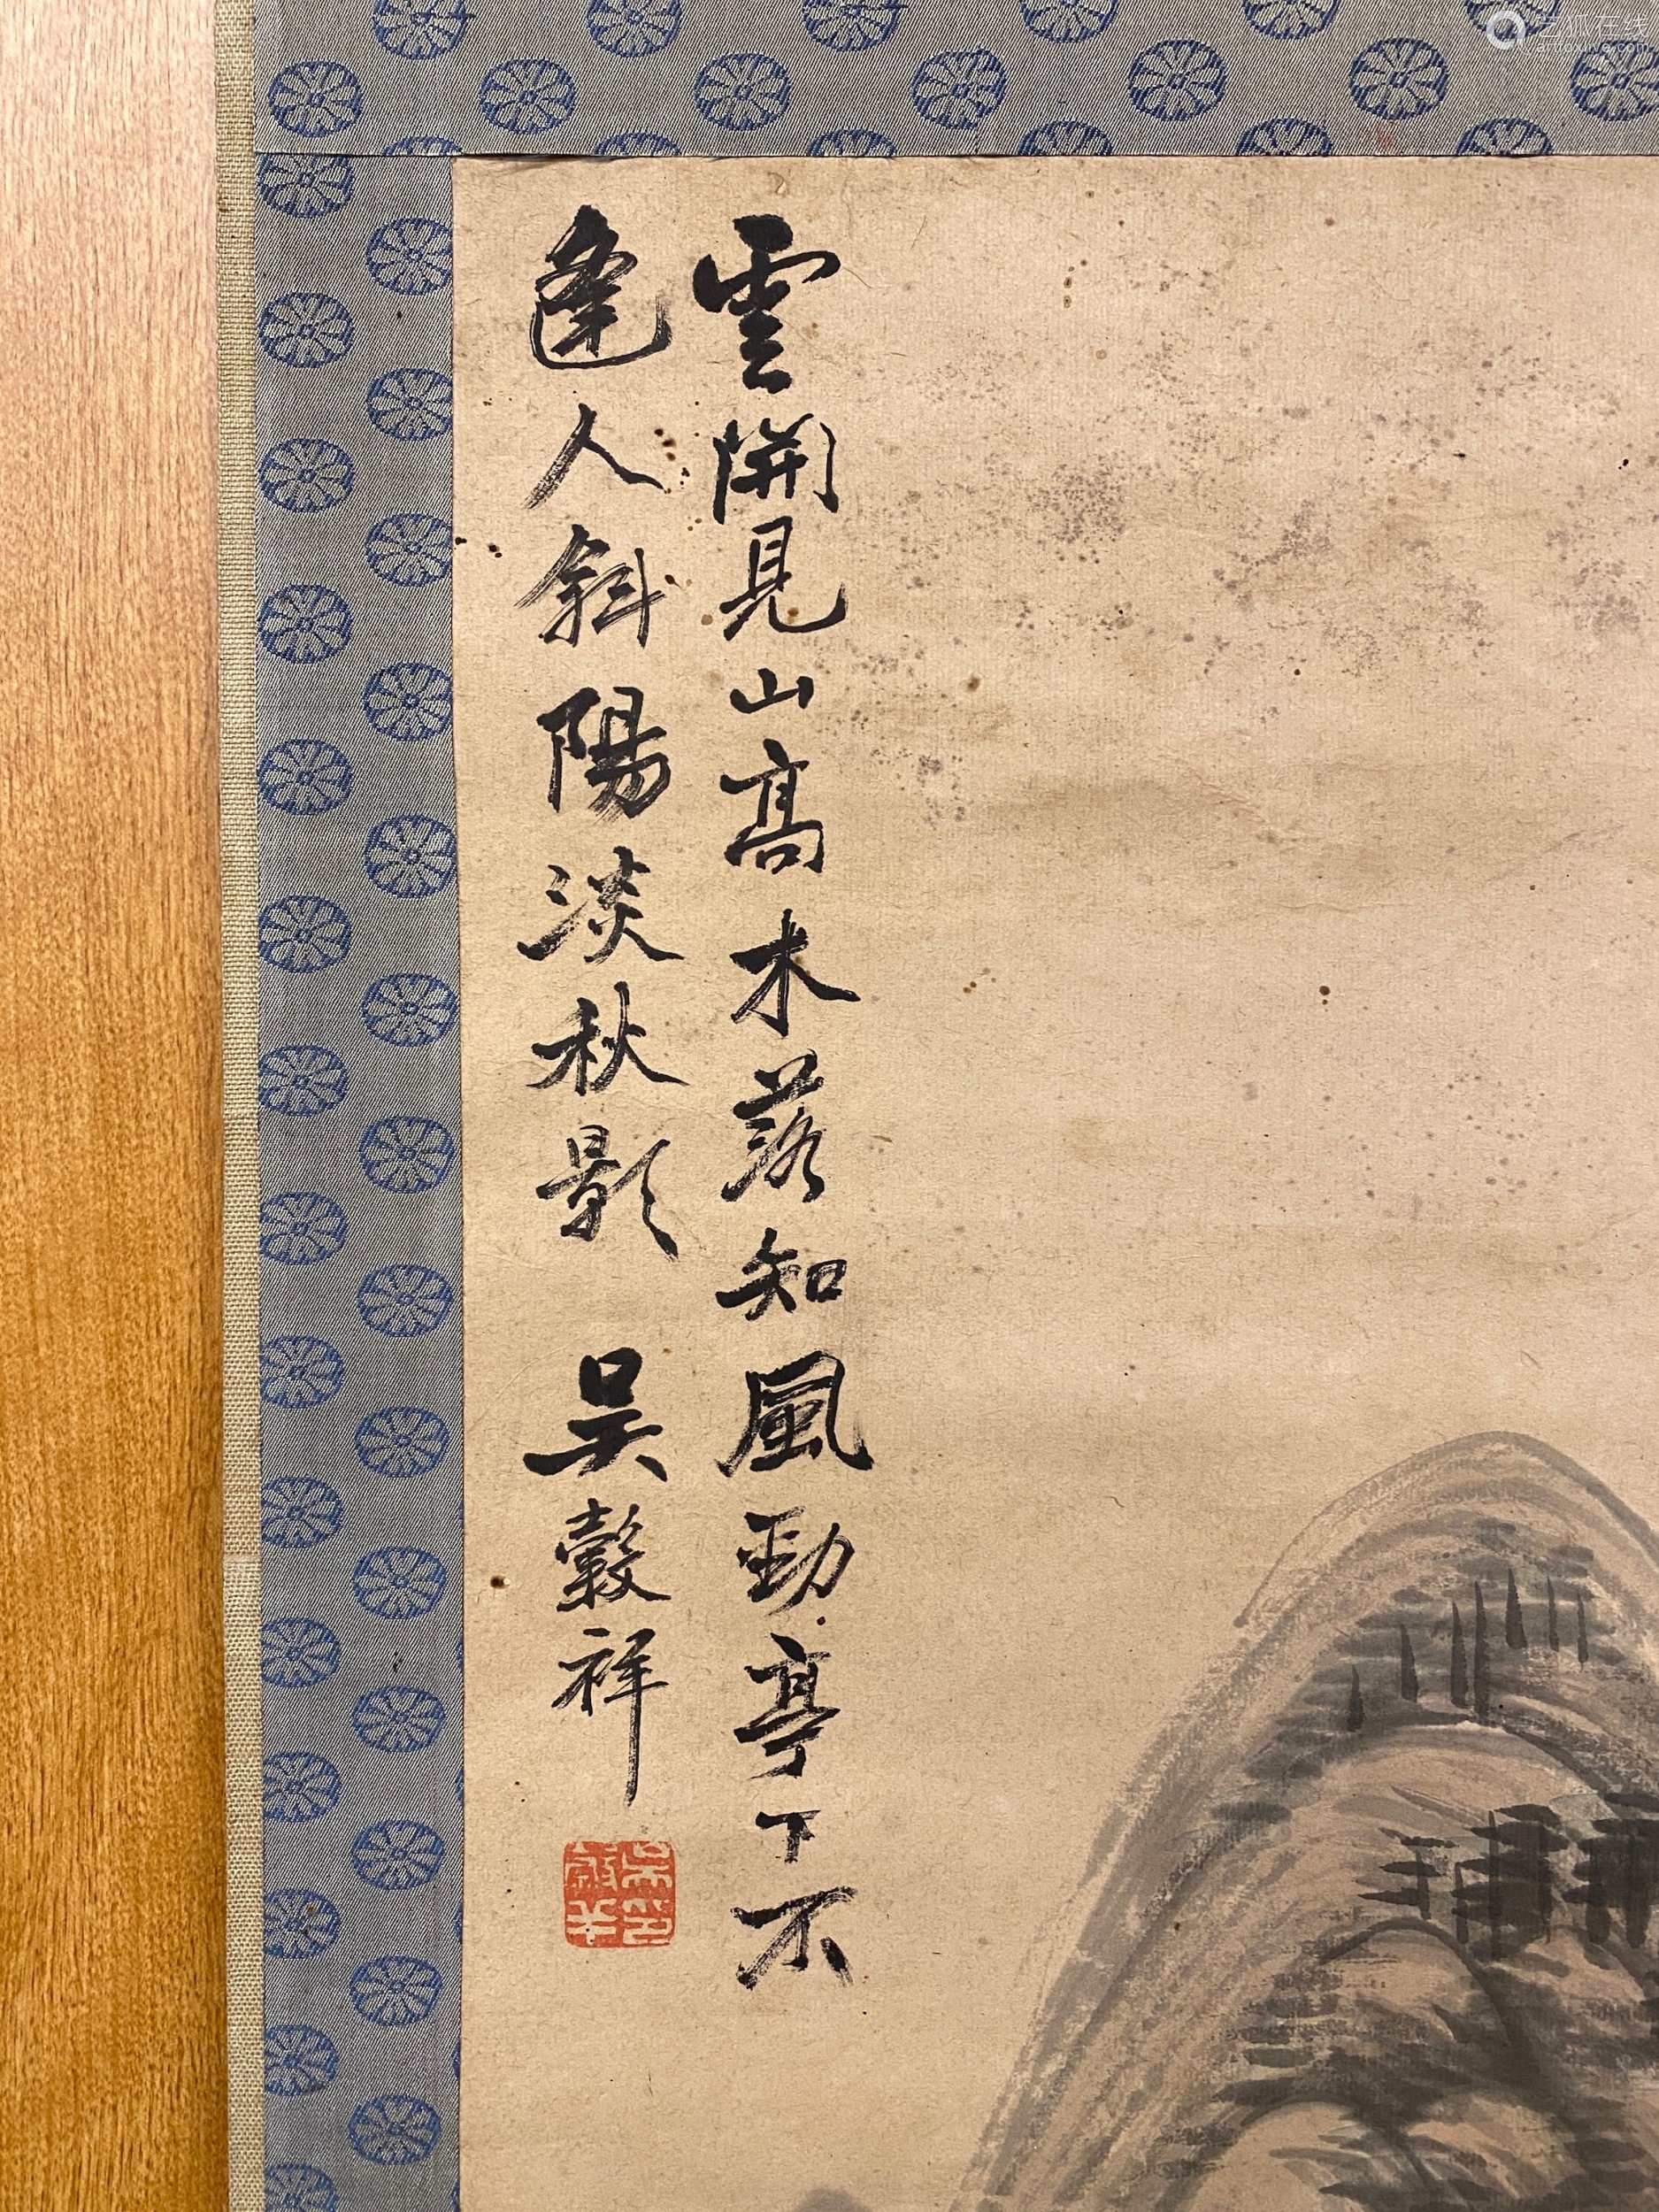 雲開見山高木落知風勁亭下不
逢人斜陽淡秋影 吳穀祥
艺狐在线
artfoxlive.com